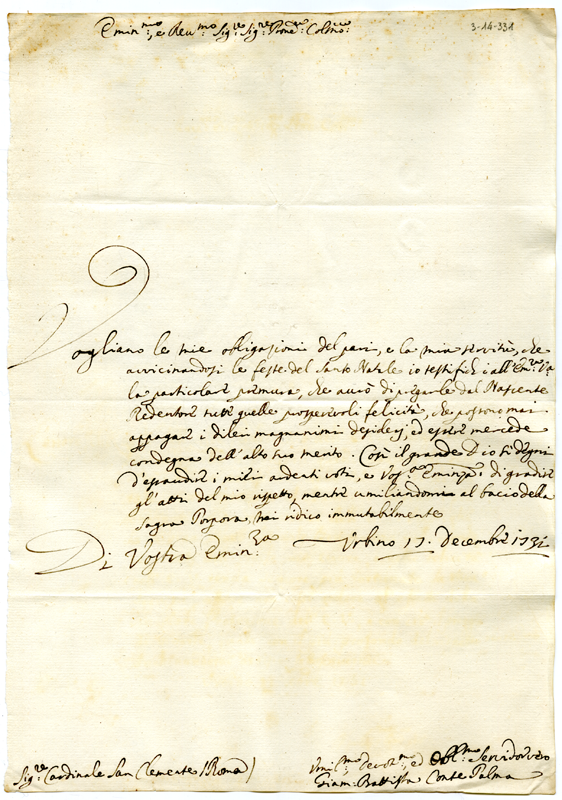 Emin.mo, e Reu.mo Sig.re Sig.re Prōne Colmo:
3-14-331
Vogliano le mie obligazioni del pari, e la mia servitù, che
avvicinandosi le feste del Santo Natale io testifichi all'Em.za V.a
la particolare premura, che avrò di pregarle dal Nascente
Redentore tutte quelle prosperevoli felicità, che possono mai
appagar i di lei magnanimi desiderj, ed esser mercede
condegna dell'alto suo merito. Così il grande Dio si degni
d'esaudire i miei ardenti voti, e Vos.a Eminza: di gradire
gl'atti del mio rispetto, mentre umiliandomi al bacio della
Sagra Porpora, mi ridico immutabilmente
Di Vostra Emin.za Urbino 17. Decembre 1731
Sig.re Cardinale San Clemente /Roma/
Umil.mo, Devot.mo, ed Obbl.mo Servidor vero
Giam: Battista Conte Palma